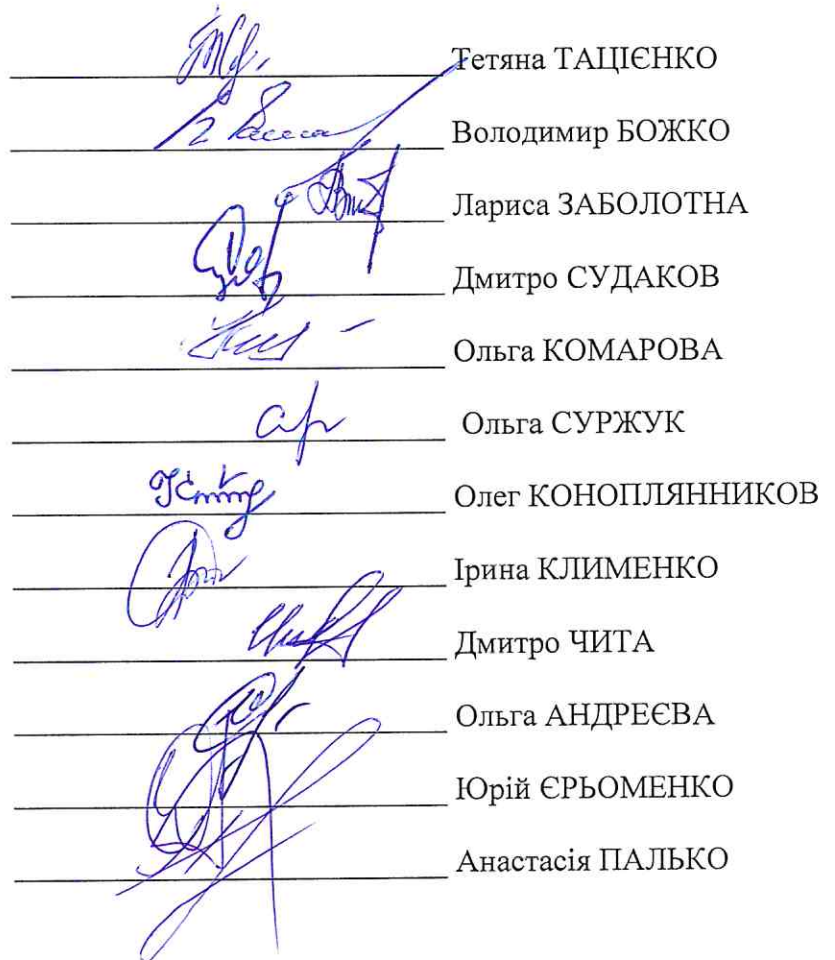 Тетяна ТАЦІЄНКО
Володимир БОЖКО
Лариса ЗАБОЛОТНА
Дмитро СУДАКОВ
Ольга КОМАРОВА
Ольга СУРЖУК
Олег КОНОПЛЯННИКОВ
Ірина КЛИМЕНКО
Дмитро ЧИТА
Ольга АНДРЕЄВА
Юрій ЄРЬОМЕНКО
Анастасія ПАЛЬКО